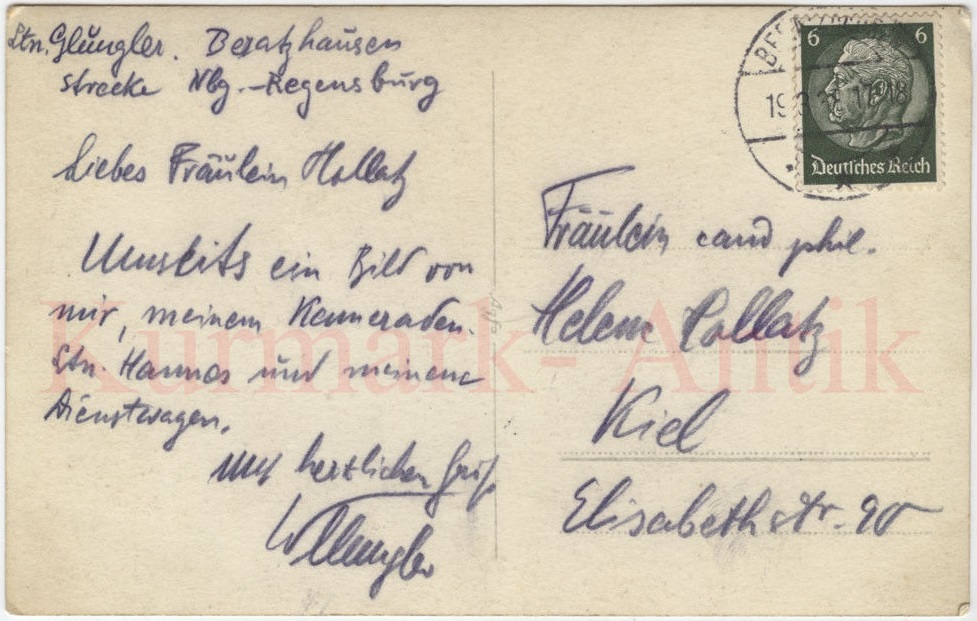 Ltn. Glüngler. Beratzhausen
Strecke Nbg.-Regensburg
Liebes Fräulein Hollatz
Umseits ein Bild von
mir, meinem Kameraden.
Ltn. Hannos und meinem
Dienstwagen.
Mit herzlichen Gruß
Glüngler
6 6
Deutsches Reich
19.3. 17-18
Fräulein cand phil.
Helene Hollatz
Kiel
Elisabethstr. 90
Agfa
Kurmark-Antik